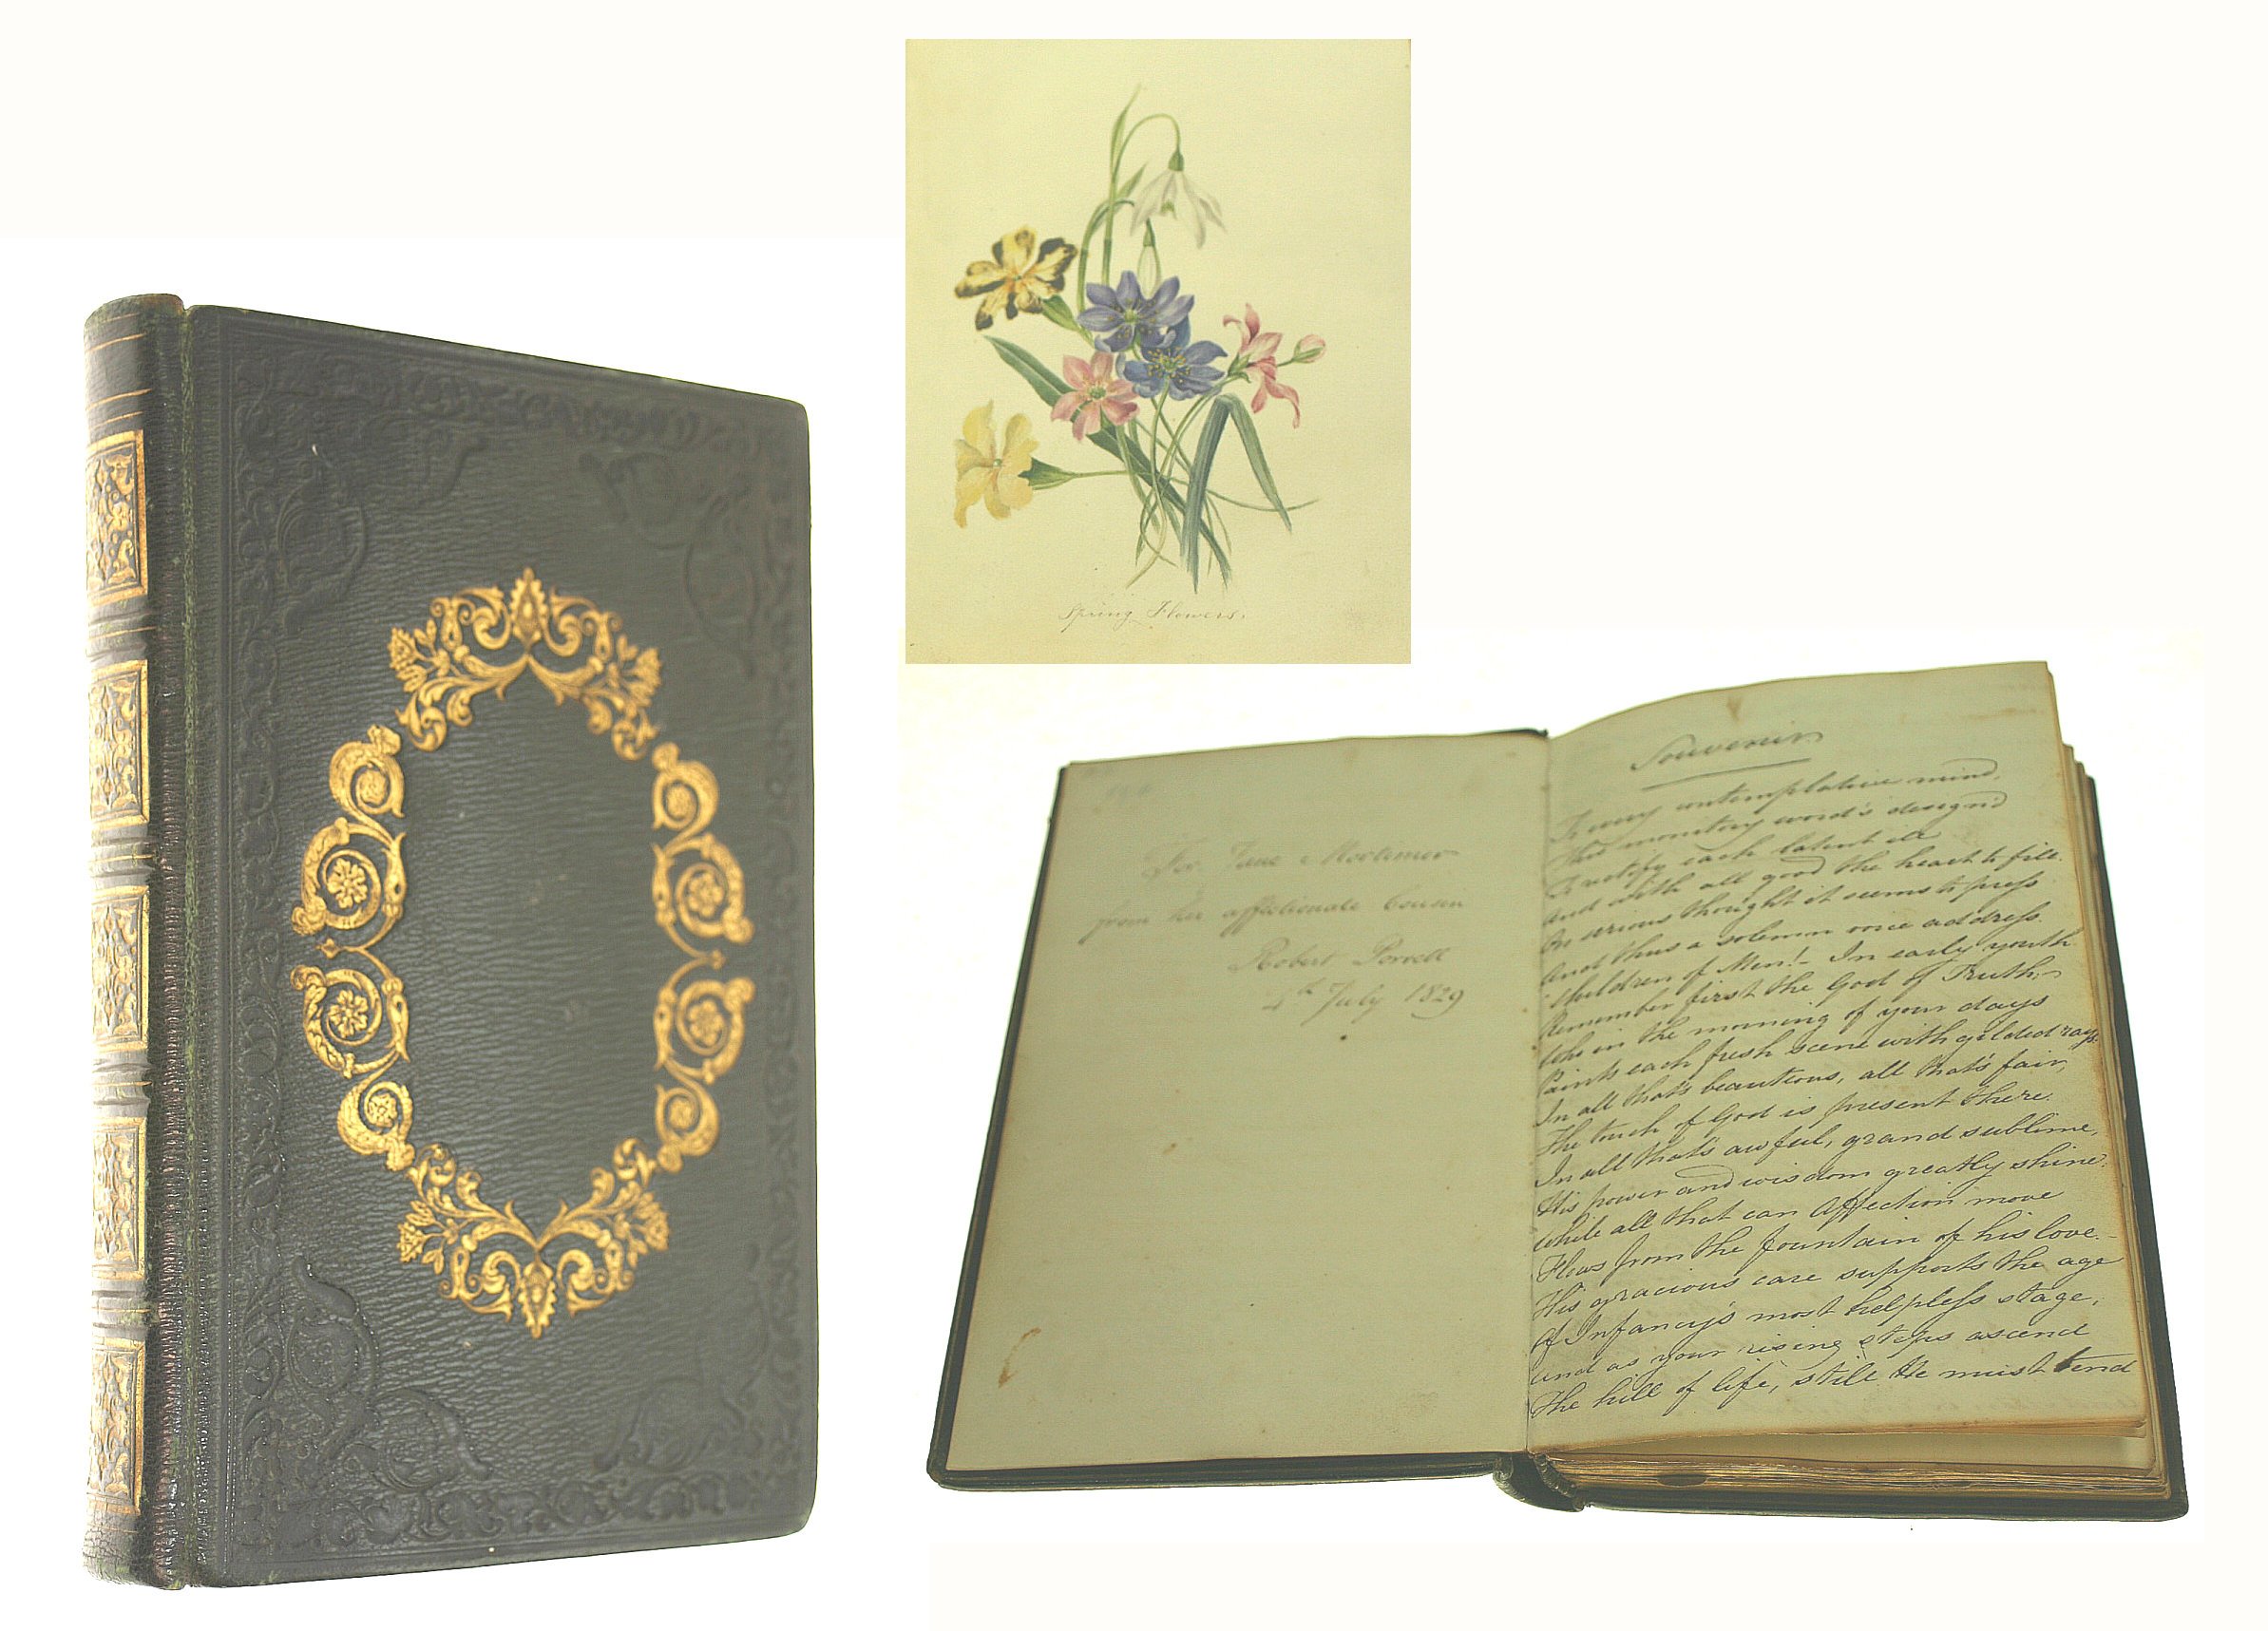 Spring Flowers.
For Jane Mortimer
from her affectionate Cousin
Robert Porrett
4th July 1829
Souvenir
To every contemplative mind,
This monitory word's design'd
To rectify each latent ill
And with all good the heart to fill.
On serious thought it seems to press
And thus a solemn voice address.
"Children of Men!- In early youth
Remember first the God of Truth,
Who in the morning of your days
Paints each fresh scene with gilded rays.
In all that's beauteous, all that's fair,
The touch of God is present there.
In all that's awful, grand sublime,
His power and wisdom greatly shine.
While all that can Affection move
Flows from the fountain of his love.-
His gracious care supports the age
Of Infancy's most helpless stage,
And as your rising steps ascend
The hill of life, still He must tend